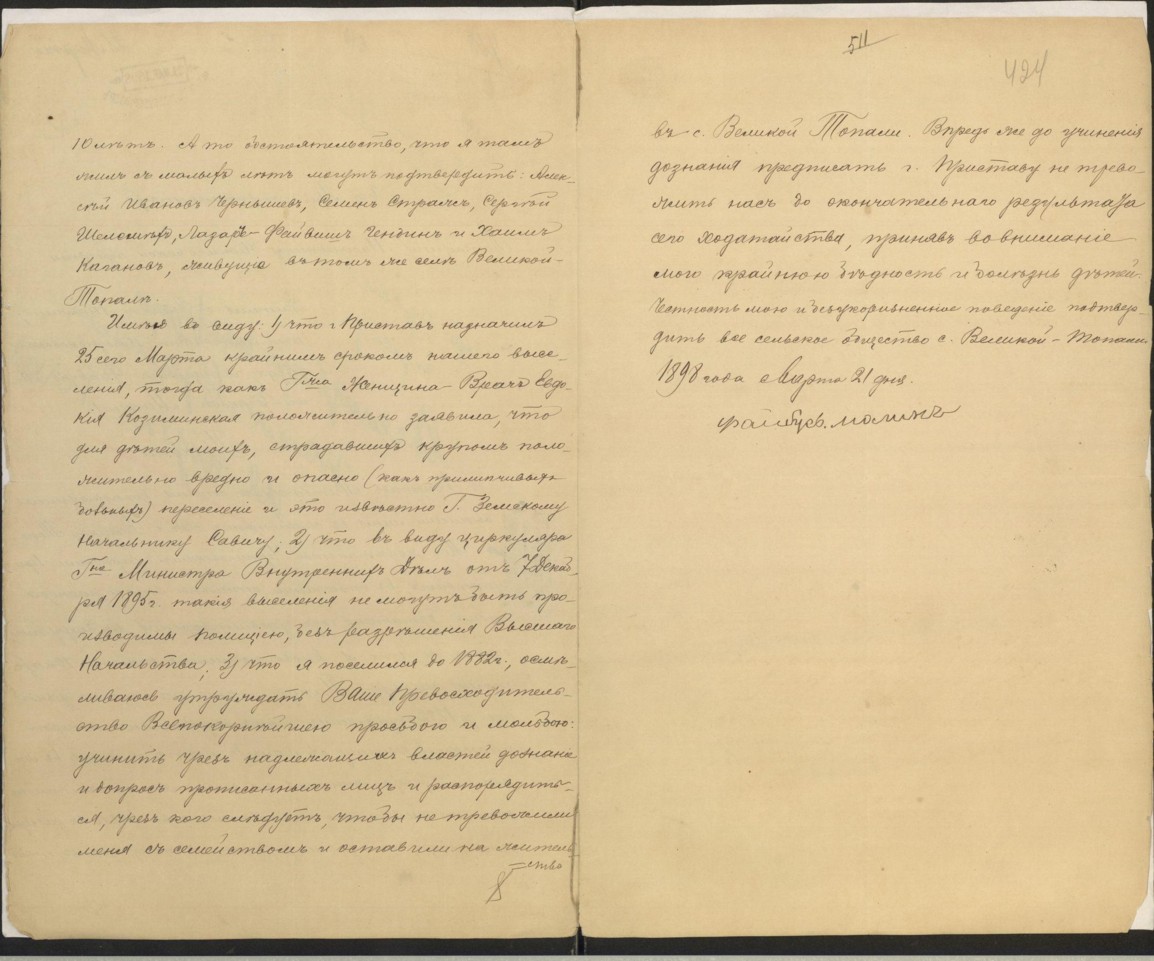 10 лѣтъ. А то обстоятельство, что я тамъ
жилъ съ малыхъ лѣтъ могутъ подтвердить: Алек-
сѣй Ивановъ Чернышевъ, Семенъ Страмсъ, Сергѣй
Шеломкъ, Лазарь-Файвишъ Гендинъ и Хаимъ
Кагановъ, живущіе въ томъ же селѣ Великой-
Топали.
Имѣя въ виду: 1) что г. Приставъ назначилъ
25 сего Марта крайнимъ срокомъ нашего высе-
ленія, тогда какъ Гжа Женщина-Врачъ Евдо-
кія Козиминская положительно заявила, что
для дѣтей моихъ, страдавшихъ крупомъ поло-
жительно вредно и опасно (какъ прилипчивыхъ
больныхъ) переселеніе и это извѣстно Г. Земскому
Начальнику Савичу; 2) что въ виду циркуляра
Гна Министра Внутреннихъ Дѣлъ отъ 7 Декаб-
ря 1895 г. такія выселенія не могутъ быть про-
изводимы полиціею, безъ разрѣшенія Высшаго
Начальства; 3) что я поселился до 1882 г., осмѣ-
ливаюсь утруждать Ваше Превосходитель-
ство Всепокорнѣйшею просьбою и мольбою:
учинить чрезъ надлежащихъ властей дознаніе
и допросъ прописанныхъ лицъ и распорядить-
ся, чрезъ кого слѣдуетъ, чтобы не тревожили
меня съ семействомъ и оставили на житель-
ство
511
424
въ с. Великой Топали. Впредь же до учиненія
дознанія предписать г. Приставу не трево-
жить насъ до окончательнаго результата
сего ходатайства, принявъ во вниманіе
мою крайнюю бѣдность и болѣзнь дѣтей.
Честность мою и безукоризненное поведеніе подтвер-
дитъ все сельское общество с. Великой-Топали.
1898 года Марта 21 дня.
Файбусъ Молинъ